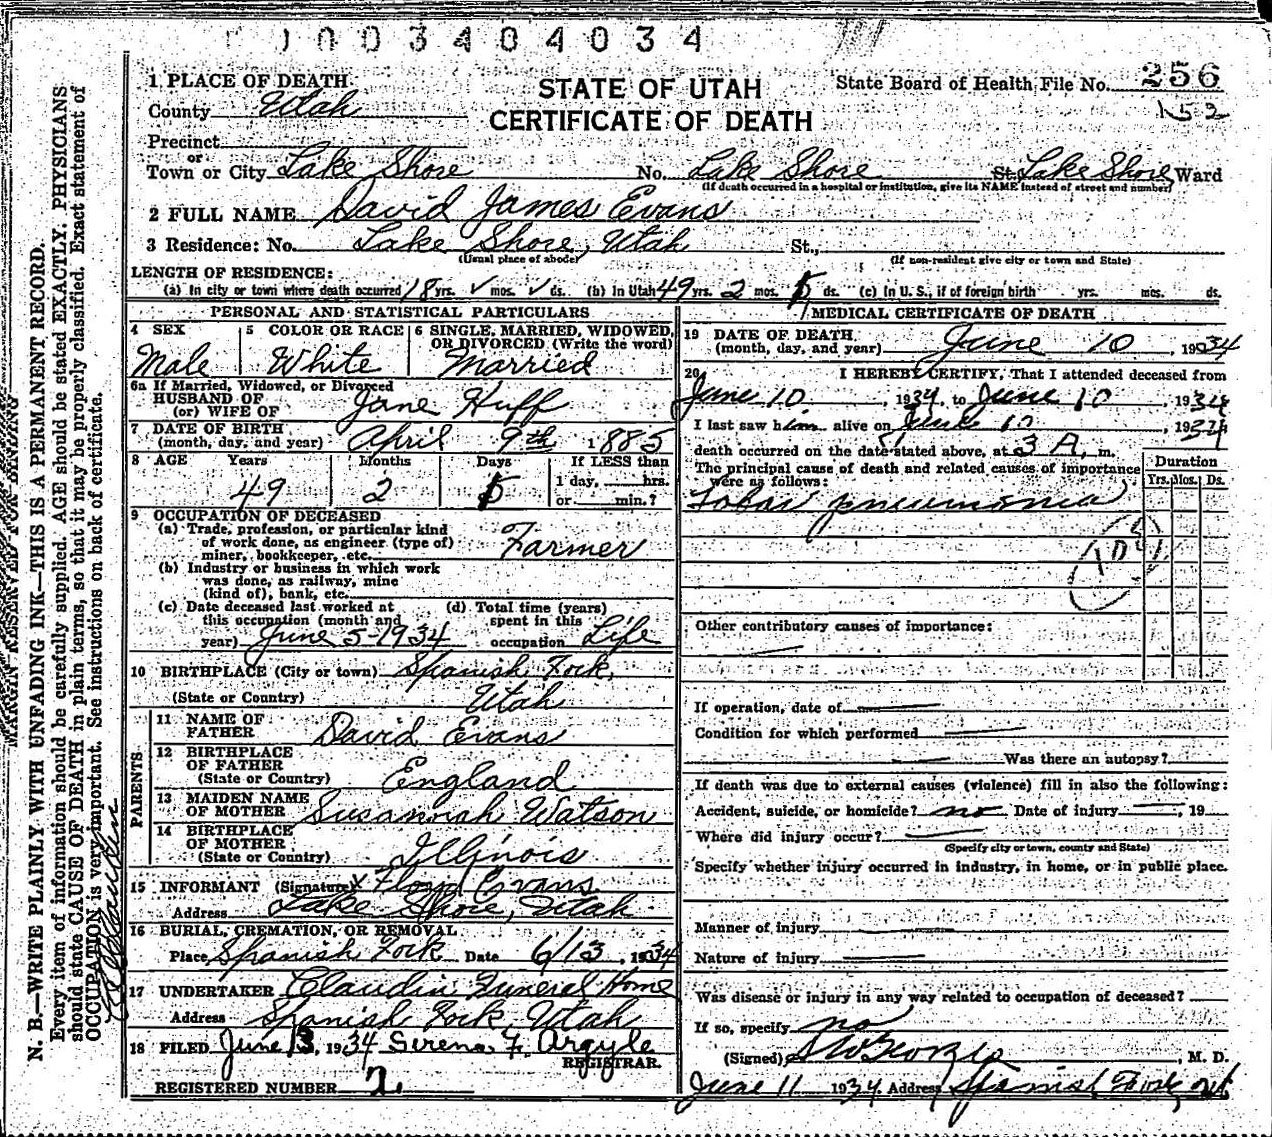 1003404034
1 PLACE OF DEATH
STATE OF UTAH
State Board of Health File No. 256
County Utah
CERTIFICATE OF DEATH
153
Precinct
or
Town or City Lake Shore No. Lake Shore St. Lake Shore Ward
(If death occurred in a hospital or institution, give its NAME instead of street and number)
2 FULL NAME David James Evans
3 Residence: No. Lake Shore, Utah St.,
(Usual place of abode) (If non-resident give city or town and State)
LENGTH OF RESIDENCE:
(a) In city or town where death occurred 18 yrs. mos. ds. (b) In Utah 49 yrs. 2 mos. ds. (c) In U. S., if of foreign birth yrs. mos. ds.
PERSONAL AND STATISTICAL PARTICULARS
4 SEX 5 COLOR OR RACE 6 SINGLE, MARRIED, WIDOWED, OR DIVORCED (Write the word)
Male White Married
6a If Married, Widowed, or Divorced
HUSBAND OF
(or) WIFE OF Jane Huff
7 DATE OF BIRTH
(month, day, and year) April 9th 1885
8 AGE Years Months Days If LESS than
1 day, hrs.
49 2 or min.?
9 OCCUPATION OF DECEASED
(a) Trade, profession, or particular kind
of work done, as engineer (type of)
miner, bookkeeper, etc. Farmer
(b) Industry or business in which work
was done, as railway, mine
(kind of), bank, etc.
(c) Date deceased last worked at
this occupation (month and
year) June 5-1934
(d) Total time (years)
spent in this
occupation Life
10 BIRTHPLACE (City or town) Spanish Fork,
(State or Country) Utah
PARENTS
11 NAME OF
FATHER David Evans
12 BIRTHPLACE
OF FATHER
(State or Country) England
13 MAIDEN NAME
OF MOTHER Susannah Watson
14 BIRTHPLACE
OF MOTHER
(State or Country) Illinois
15 INFORMANT (Signature) x Floyd Evans
Address Lake Shore, Utah
16 BURIAL, CREMATION, OR REMOVAL
Place Spanish Fork Date 6/13, 1934
17 UNDERTAKER Claudin Funeral Home
Address Spanish Fork, Utah
18 FILED June 13, 1934 Serena F. Argyle
REGISTRAR.
REGISTERED NUMBER 2.
MEDICAL CERTIFICATE OF DEATH
19 DATE OF DEATH
(month, day, and year) June 10, 1934
20 I HEREBY CERTIFY, That I attended deceased from
June 10, 1934, to June 10, 1934
I last saw him alive on June 10, 1934
death occurred on the date stated above, at 3 A, m.
The principal cause of death and related causes of importance
were as follows:
Duration
Yrs. Mos. Ds.
Lobar pneumonia
108
Other contributory causes of importance:
If operation, date of
Condition for which performed
Was there an autopsy?
If death was due to external causes (violence) fill in also the following:
Accident, suicide, or homicide? no Date of injury , 19
Where did injury occur?
(Specify city or town, county and State)
Specify whether injury occurred in industry, in home, or in public place.
Manner of injury
Nature of injury
Was disease or injury in any way related to occupation of deceased?
If so, specify no
(Signed) , M. D.
June 11 1934 Address Spanish Fork, Ut
MARGIN RESERVED FOR BINDING
N. B.—WRITE PLAINLY WITH UNFADING INK—THIS IS A PERMANENT RECORD.
Every item of information should be carefully supplied. AGE should be stated EXACTLY. PHYSICIANS
should state CAUSE OF DEATH in plain terms, so that it may be properly classified. Exact statement of
OCCUPATION is very important. See instructions on back of certificate.